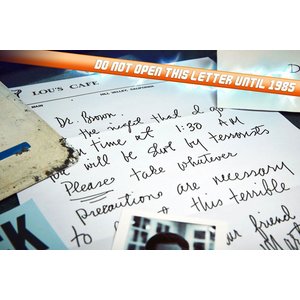 DO NOT OPEN THIS LETTER UNTIL 1985
LOU'S CAFE
HILL VALLEY, CALIFORNIA
Dr. Brown,
the night that I go
in time at 1:30 AM
you will be shot by terrorists
Please take whatever
precautions are necessary
to this terrible
friend